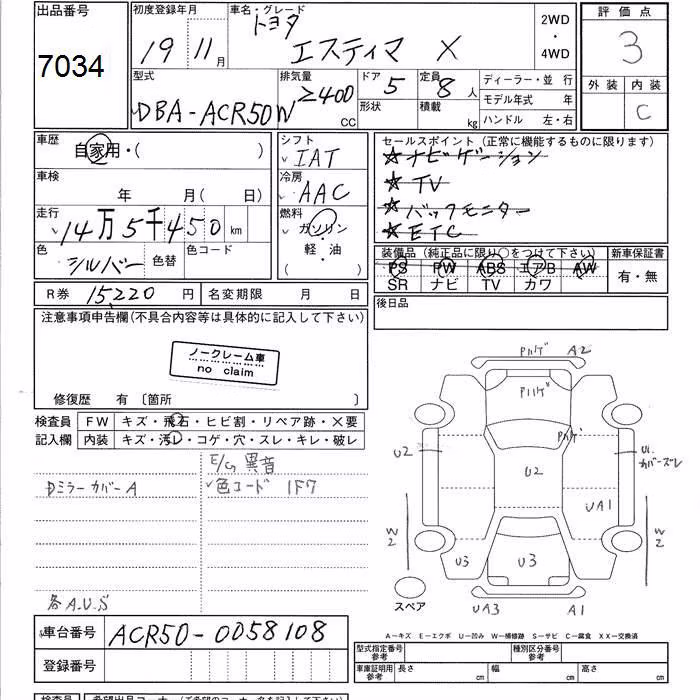 出品番号
初度登録年月
車名・グレード
2WD
・
4WD
評価点
7034
19 11月
トヨタ
エスティマ X
3
外装 内装
C
型式
DBA-ACR50W
排気量
≥400 CC
ドア 5
形状
定員 8人
積載 kg
ディーラー・並 行
モデル年式 年
ハンドル 左・右
車歴
自家用・( )
シフト
IAT
セールスポイント (正常に機能するものに限ります)
☆ナビゲーション
☆TV
☆バックモニター
☆ETC
車検
年 月(日)
冷房
AAC
走行
14万5千450km
燃料
ガソリン
・
軽・油
( )
色
シルバー
色替
色コード
装備品 (純正品に限り○をつけて下さい)
新車保証書
PS PW ABS エアB AW
SR ナビ TV カワ
有・無
R券 15,220円
名変期限 月 日
後日品
注意事項申告欄(不具合内容等は具体的に記入して下さい)
ノークレーム車
no claim
修復歴 有 〔箇所 〕
検査員
記入欄
FW キズ・飛石・ヒビ割・リペア跡・×要
内装 キズ・汚レ・コゲ・穴・スレ・キレ・破レ
E/G異音
Dミラーカバー A
色コード 1F7
各A.U.S
Pハゲ A2
Pハゲ
Pハゲ
U2
U2
U1
カバーズレ
UA1
W2
W2
U3
U3
スペア
UA3
A1
A-キズ E-エクボ U-凹み W-補修跡 S-サビ C-腐食 XX-交換済
車台番号 ACR50-0058108
登録番号
型式指定番号
参考
種別区分番号
参考
車庫証明用
参考
長さ cm
幅 cm
高さ cm
検査員
希望出品コーナー (ご希望のコーナー名を記入して下さい)